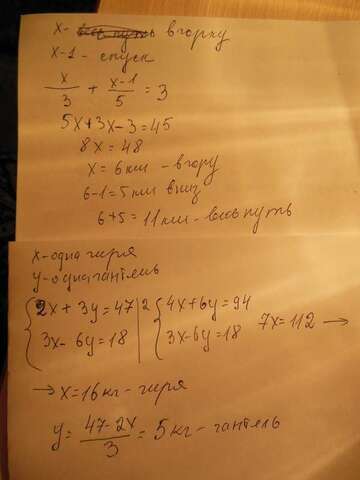 x - в горку
x-1 - спуск
x/3 + x-1/5 = 3
5x+3x-3=45
8x=48
x = 6 км - вгору
6-1=5 км вниз
6+5=11 км - весь путь
x-одна гиря
y-одна гантель
2x+3y=47 |2 4x+6y=94
3x-6y=18 3x-6y=18 7x=112 →
→ x=16 кг - гиря
y = 47-2x/3 = 5 кг - гантель